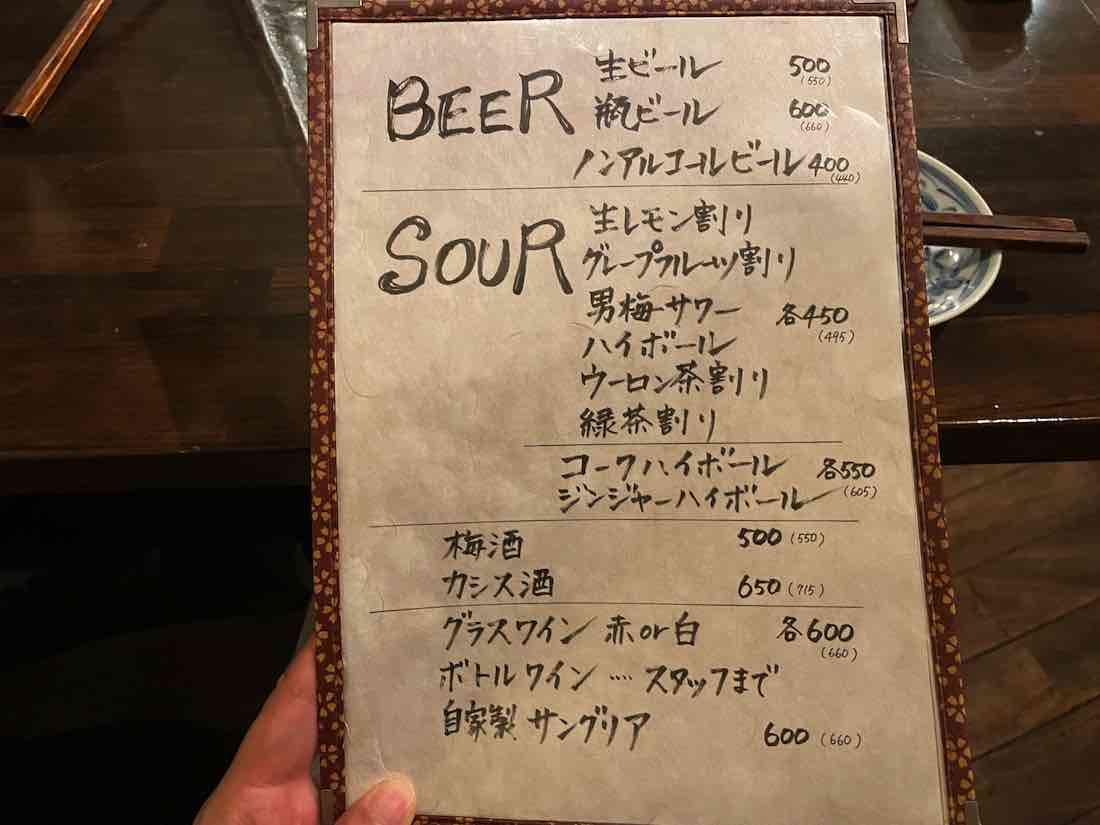 BEER
生ビール 500
(550)
瓶ビール 600
(660)
ノンアルコールビール 400
(440)
SOUR
生レモン割り
グレープフルーツ割り
男梅サワー 各450
(495)
ハイボール
ウーロン茶割り
緑茶割り
コークハイボール 各550
(605)
ジンジャーハイボール
梅酒 500 (550)
カシス酒 650 (715)
グラスワイン 赤or白 各600
(660)
ボトルワイン ···· スタッフまで
自家製 サングリア 600 (660)